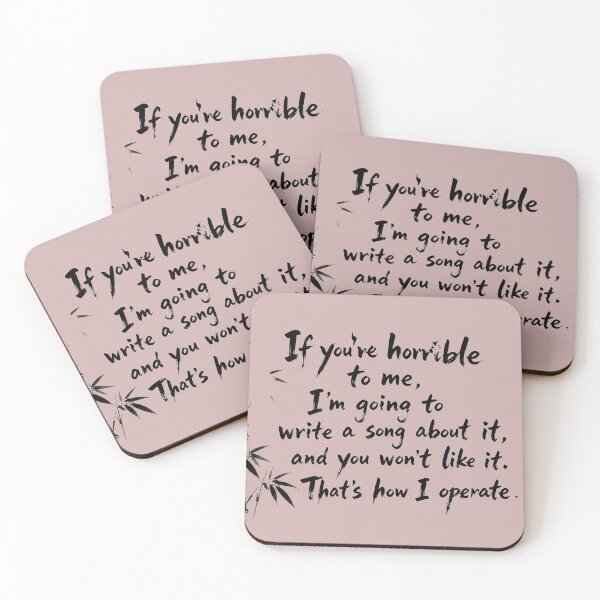 If you're horrible
to me,
I'm going to
about
If you're horrible
to me,
I'm going to
write a song about it,
and you won't like it.
If you're horrible
to me,
I'm going to
write a song about it,
and you won't
That's how
If you're horrible
to me,
I'm going to
write a song about it,
and you won't like it.
That's how I operate.